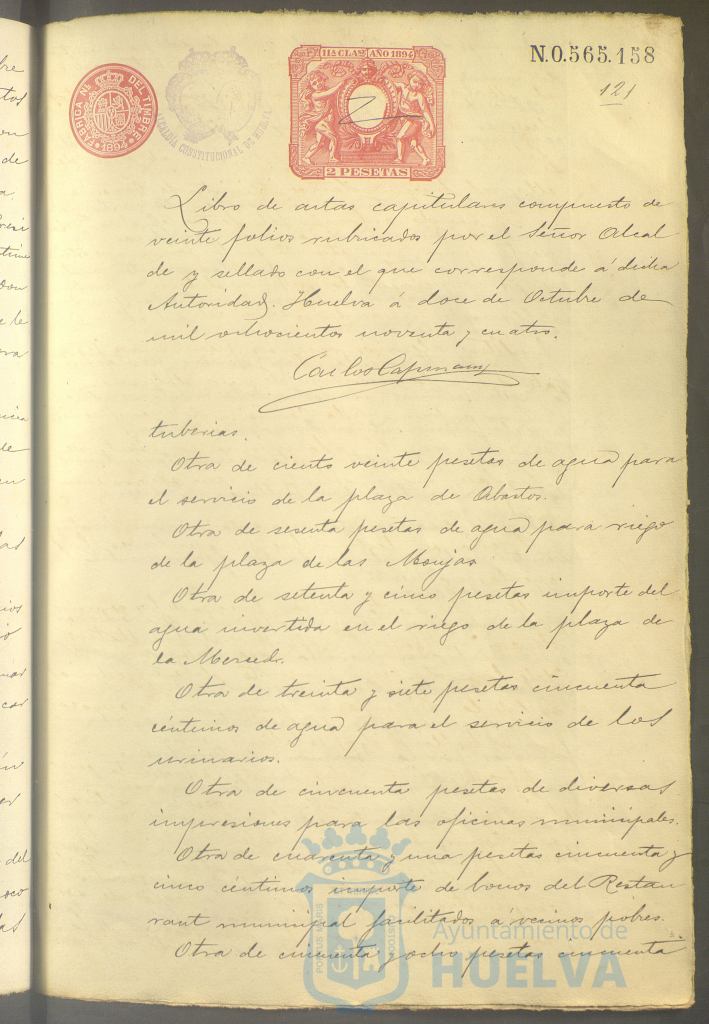 N.0.565.158
121
11ª CLASE AÑO 1894
2 PESETAS
FÁBRICA NL. DEL TIMBRE
1894
ALCALDIA CONSTITUCIONAL DE HUELVA
Libro de actas capitulares compuesto de
veinte folios rubricados por el Señor Alcal
de y sellado con el que corresponde á dicha
Autoridad. Huelva á doce de Octubre de
mil ochocientos noventa y cuatro.
Carlos
tuberias.
Otra de ciento veinte pesetas de agua para
el servicio de la plaza de Abastos.
Otra de sesenta pesetas de agua para riego
de la plaza de las Monjas
Otra de setenta y cinco pesetas importe del
agua invertida en el riego de la plaza de
la Merced.
Otra de treinta y siete pesetas cincuenta
céntimos de agua para el servicio de los
urinarios.
Otra de cincuenta pesetas de diversas
impresiones para las oficinas municipales.
Otra de cuarenta y una pesetas cincuenta y
cinco céntimos importe de bonos del Restau
rant municipal facilitados á vecinos pobres.
Otra de cincuenta y ocho pesetas cincuenta
Ayuntamiento de
HUELVA